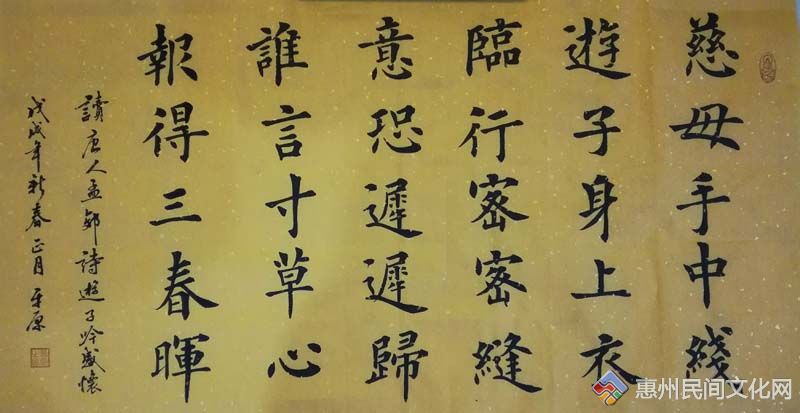 慈母手中綫
遊子身上衣
臨行密密縫
意恐遲遲歸
誰言寸草心
報得三春暉
讀唐人孟郊詩遊子吟感懷
戊戌年新春正月 平原
惠州民间文化网